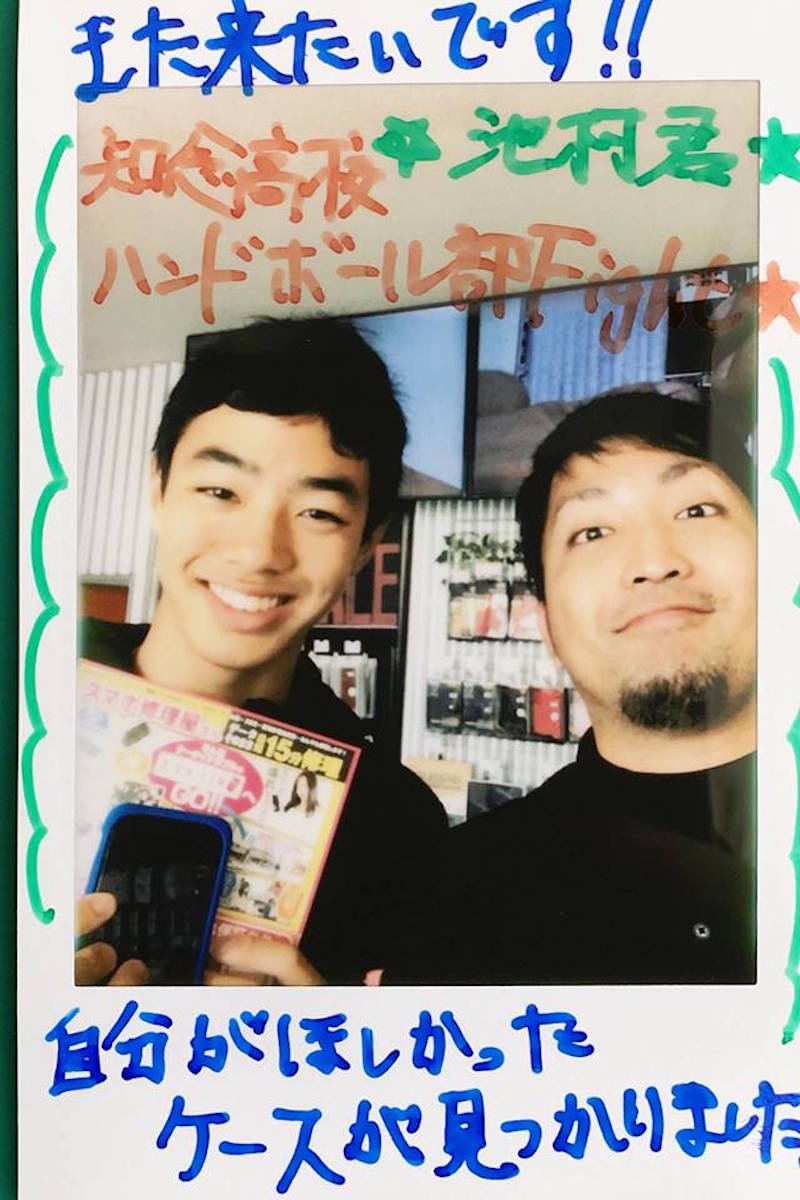 また来たいです!!
知念高校★池村君★
ハンドボール部Fight★
SALE
スマホ修理屋
15分修理
GO!!
自分がほしかった
ケースが見つかりました